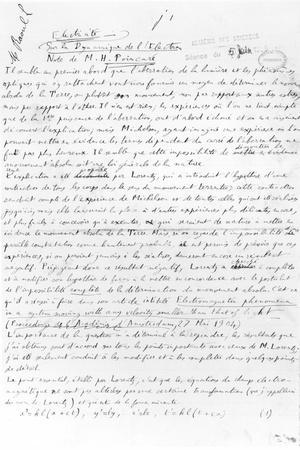 Electricité
Sur la Dynamique de l'Electron
Note de M. H. Poincaré
Il semble au premier abord que l'aberration de la lumière et les phénomènes
optiques qui s'y rattachent vont nous fournir un moyen de déterminer le mouvement
absolu de la Terre, ou plutôt son mouvement, non par rapport aux autres astres,
mais par rapport à l'éther. Il n'en est rien; les expériences où l'on ne tient compte
que de la 1ère puissance de l'aberration, ont d'abord échoué et on en a aisément
découvert l'explication; mais Michelson, ayant imaginé une expérience où l'on
pouvait mettre en évidence les termes dépendant du carré de l'aberration, ne
fut pas plus heureux. Il semble que cette impossibilité de
mouvement absolu soit une loi générale de la nature.
L'explication a été par Lorentz, qui a introduit l'hypothèse d'une
contraction de tous les corps dans le sens du mouvement terrestre; cette contraction
rendrait compte de l'expérience de Michelson et de toutes celles qui ont été réalisées
jusqu'ici, mais elle laisserait la place à d'autres expériences plus délicates encore,
plus faciles à concevoir qu'à exécuter, qui seraient de nature à mettre en
évidence le mouvement absolu de la Terre. Mais si on regarde l'impossibilité d'une
pareille constatation comme hautement probable, il est permis de prévoir que ces
expériences, si on parvient jamais à les réaliser, donneront encore un résultat
négatif. Lorentz a cherché à compléter
et à modifier son hypothèse de façon à la mettre en concordance avec le postulat
de l'impossibilité complète de la détermination du mouvement absolu. C'est ce
qu'il a réussi à faire dans son article intitulé Electromagnetic phenomena
in a system moving with any velocity smaller than that of light
(Proceedings de l'Académie d'Amsterdam, 27 Mai 1904)
L'importance de la question m'a déterminé à la reprendre; les résultats que
j'ai obtenus sont d'accord sur tous les points importants avec ceux de M. Lorentz;
j'ai été seulement conduit à les modifier et à les compléter dans quelques points
de détail.
Le point essentiel, établi par Lorentz, c'est que les équations du champ électro-
magnétique ne sont pas altérées par une certaine transformation (que j'appellerai
du nom de Lorentz) et qui est de la forme suivante
x' = kl(x+εt), y'=ly, z'=lz, t'=kl(t+εx) (1)